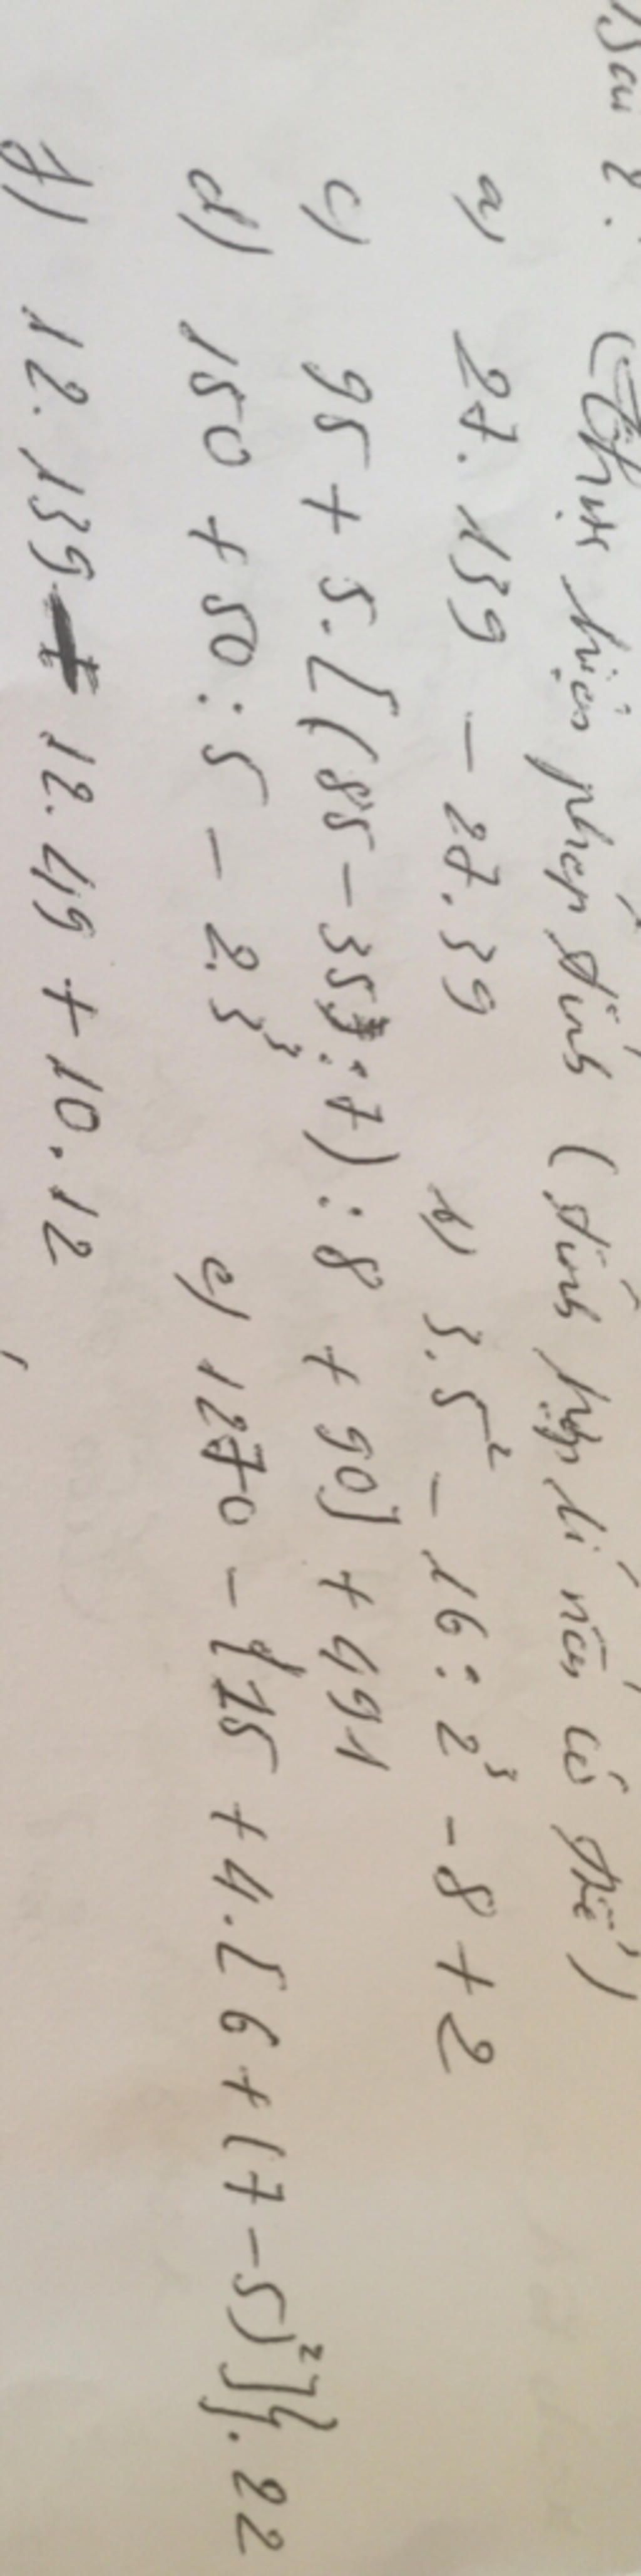 Bài 2: (Thực hiện phép tính (tính hợp lí nếu có thể)
a) 27.139 - 27.39 b) 3.5² - 16:2³ - 8 + 2
c) 95 + 5.[(85 - 35:7):8 + 90] + 491
d) 150 + 50:5 - 2.3³ e) 1270 - {15 + 4.[6 + (7 - 5)²]}.22
f) 12.139 - 12.49 + 10.12